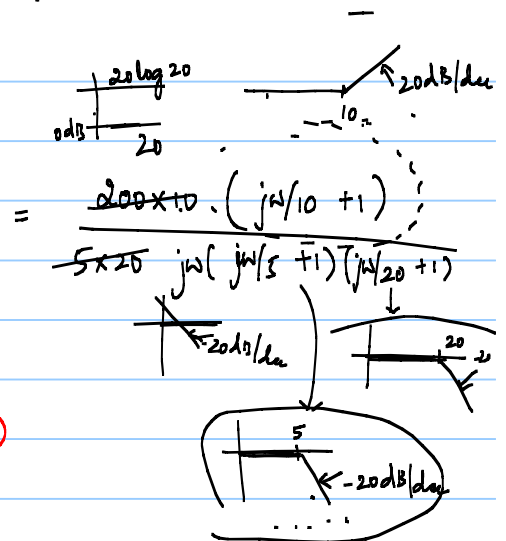 20 log 20
20dB/dec
10
0dB
20
200×10 . ( jw/10 + 1 )
=
5×20 jw( jw/5 + 1) (jw/20 + 1)
-20dB/dec
20
-20
5
-20dB/dec